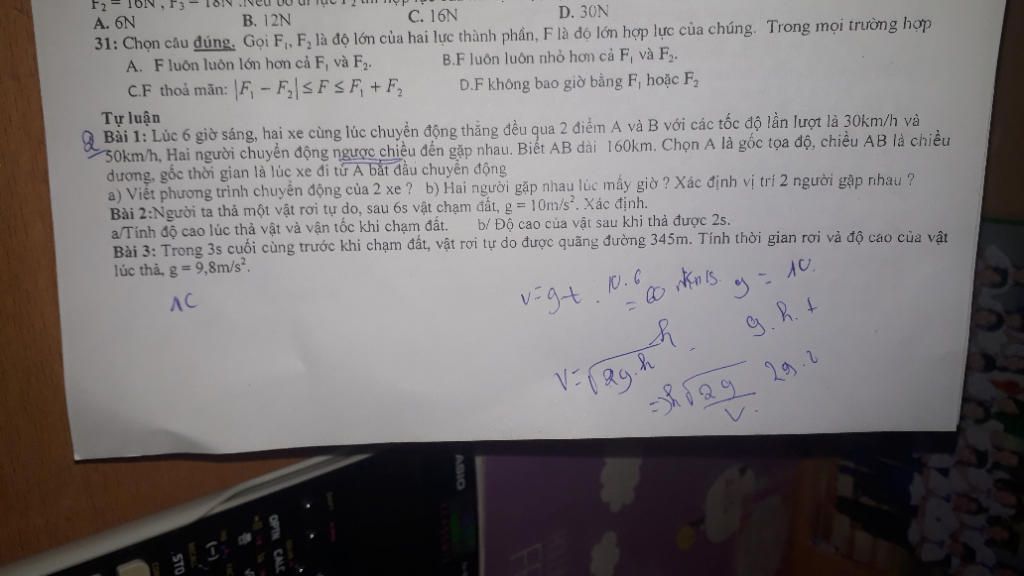 F₂ = 16N , F₃ = 18N .Nếu bỏ đi lực F₂ thì hợp lực của
A. 6N B. 12N C. 16N D. 30N
31: Chọn câu đúng. Gọi F₁, F₂ là độ lớn của hai lực thành phần, F là độ lớn hợp lực của chúng. Trong mọi trường hợp
A. F luôn luôn lớn hơn cả F₁ và F₂. B.F luôn luôn nhỏ hơn cả F₁ và F₂.
C.F thoả mãn: |F₁ − F₂| ≤ F ≤ F₁ + F₂ D.F không bao giờ bằng F₁ hoặc F₂
Tự luận
Bài 1: Lúc 6 giờ sáng, hai xe cùng lúc chuyển động thẳng đều qua 2 điểm A và B với các tốc độ lần lượt là 30km/h và
50km/h, Hai người chuyển động ngược chiều đến gặp nhau. Biết AB dài 160km. Chọn A là gốc tọa độ, chiều AB là chiều
dương, gốc thời gian là lúc xe đi từ A bắt đầu chuyển động
a) Viết phương trình chuyển động của 2 xe ? b) Hai người gặp nhau lúc mấy giờ ? Xác định vị trí 2 người gặp nhau ?
Bài 2:Người ta thả một vật rơi tự do, sau 6s vật chạm đất, g = 10m/s². Xác định.
a/Tính độ cao lúc thả vật và vận tốc khi chạm đất. b/ Độ cao của vật sau khi thả được 2s.
Bài 3: Trong 3s cuối cùng trước khi chạm đất, vật rơi tự do được quãng đường 345m. Tính thời gian rơi và độ cao của vật
lúc thả, g = 9,8m/s².
1C
v=gt . 10.6 g = 10.
= 60
h g.h.t
V=√2g.h
=> h √2g 2g.2
V.
CASIO
OPTN CALC
(−)
STO